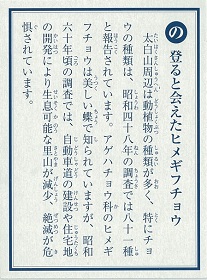 の 登ると会えたヒメギフチョウ
太白山周辺は動植物の種類が多く、特にチョ
ウの種類は、昭和四十八年の調査では八十一種
と報告されています。アゲハチョウ科のヒメギ
フチョウは美しい蝶で知られていますが、昭和
六十年頃の調査では、自動車道の建設や住宅地
の開発により生息可能な里山が減少、絶滅が危
惧されています。